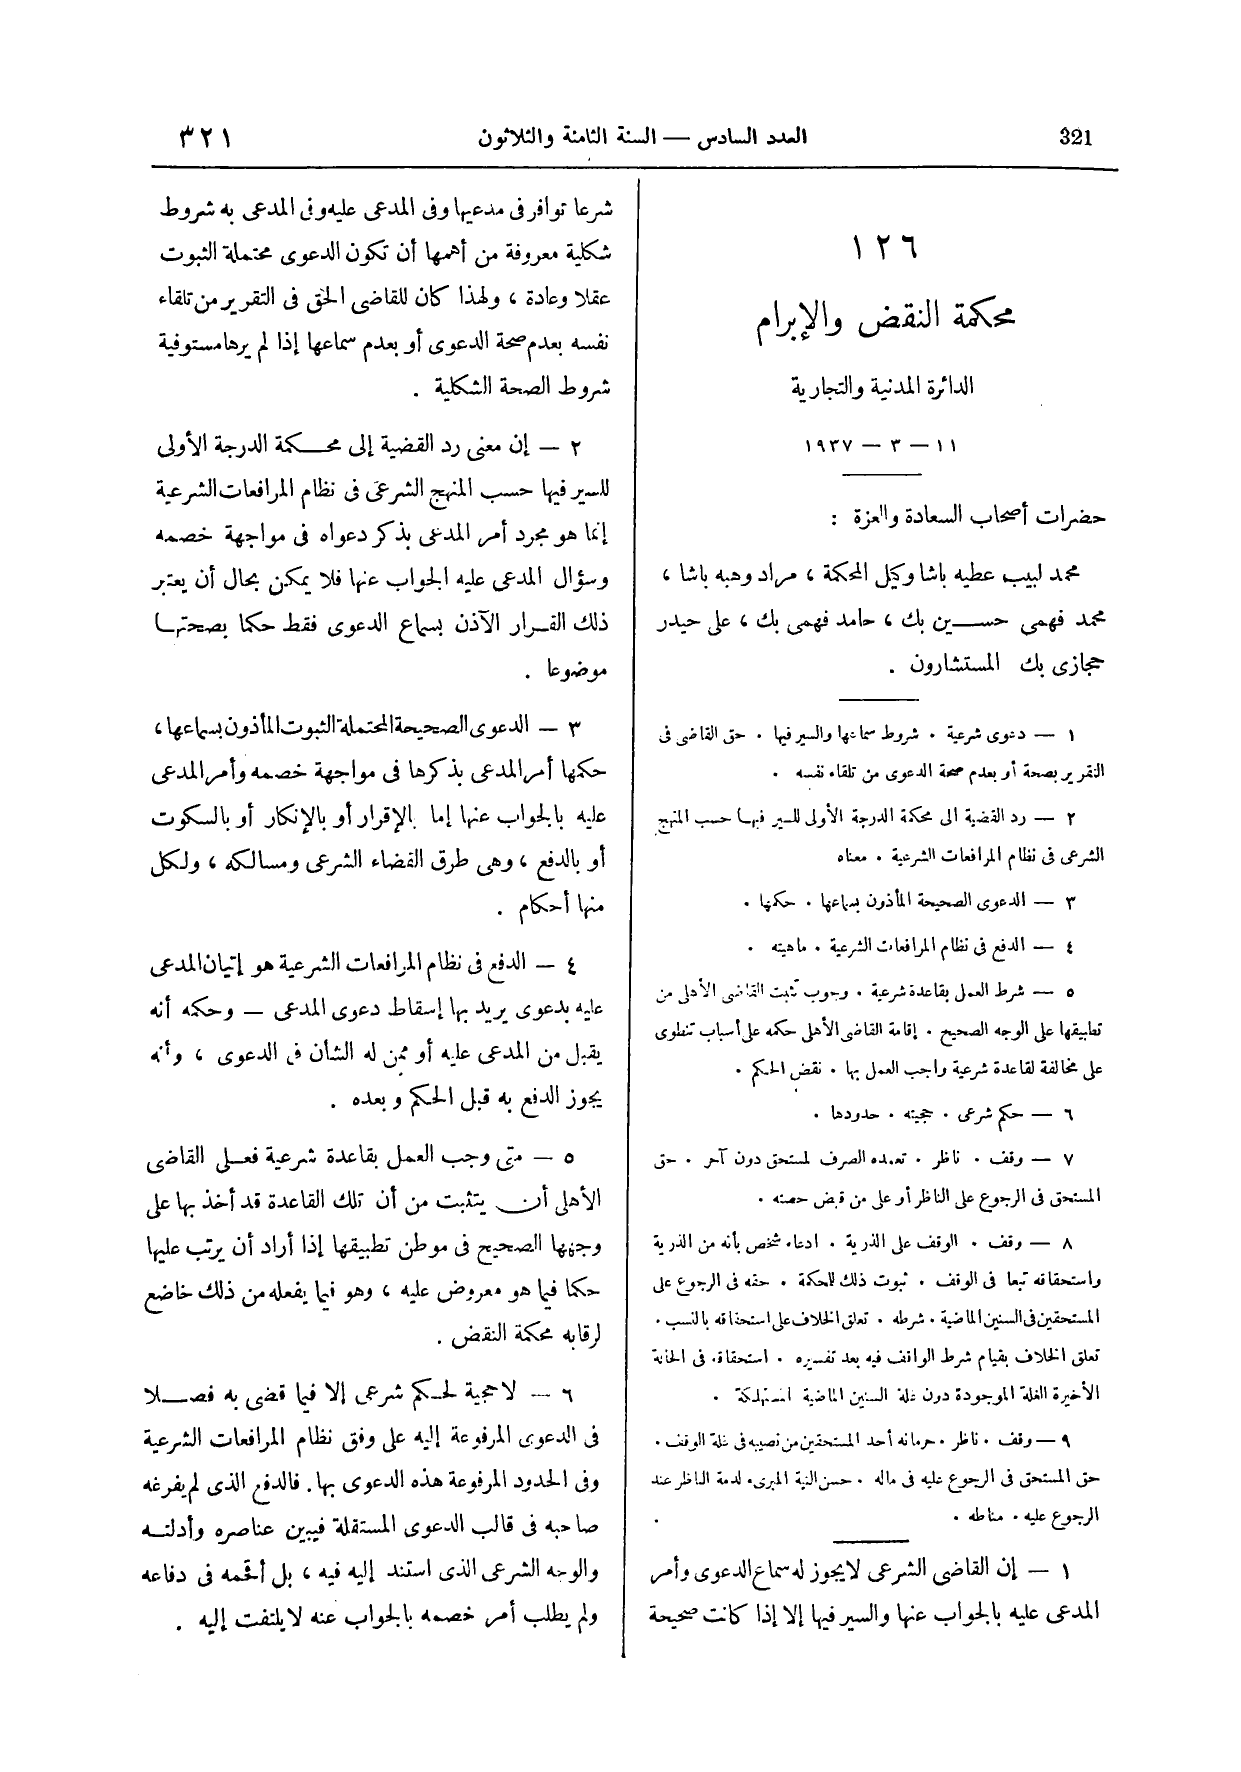 321
العدد السادس — السنة الثامنة والثلاثون
٣٢١
١٢٦
محكمة النقض والإبرام
الدائرة المدنية والتجارية
١١ — ٣ — ١٩٣٧
حضرات أصحاب السعادة والعزة :
محمد لبيب عطيه باشا وكيل المحكمة ، مراد وهبه باشا ،
محمد فهمى حسين بك ، حامد فهمى بك ، على حيدر
حجازى بك المستشارون .
١ — دعوى شرعية . شروط سماعها والسير فيها . حق القاضى فى
التقرير بصحة أو بعدم صحة الدعوى من تلقاء نفسه .
٢ — رد القضية الى محكمة الدرجة الأولى للسير فيها حسب المنهج
الشرعى فى نظام المرافعات الشرعية . معناه
٣ — الدعوى الصحيحة المأذون بسماعها . حكمها .
٤ — الدفع فى نظام المرافعات الشرعية . ماهيته .
٥ — شرط العمل بقاعدة شرعية . وجوب تثبت القاضى الأهلى من
تطبيقها على الوجه الصحيح . إقامة القاضى الأهلى حكمه على أسباب تنطوى
على مخالفة لقاعدة شرعية واجب العمل بها . نقض الحكم .
٦ — حكم شرعى . حجيته . حدودها .
٧ — وقف . ناظر . تعمده الصرف لمستحق دون آخر . حق
المستحق فى الرجوع على الناظر أو على من قبض حصته .
٨ — وقف . الوقف على الذرية . ادعاء شخص بأنه من الذرية
واستحقاقه تبعا فى الوقف . ثبوت ذلك للمحكمة . حقه فى الرجوع على
المستحقين فى السنين الماضية . شرطه . تعلق الخلاف على استحقاقه بالنسب .
تعلق الخلاف بقيام شرط الواقف فيه بعد تفسيره . استحقاقه فى الحالة
الأخيرة الغلة الموجودة دون غلة السنين الماضية المستهلكة .
٩ — وقف . ناظر . حرمانه أحد المستحقين من نصيبه فى غلة الوقف .
حق المستحق فى الرجوع عليه فى ماله . حسن النية المبرىء لذمة الناظر عند
الرجوع عليه . مناطه .
١ — إن القاضى الشرعى لا يجوز له سماع الدعوى وأمر
المدعى عليه بالجواب عنها والسير فيها إلا إذا كانت صحيحة
شرعا توافر فى مدعيها وفى المدعى عليه وفى المدعى به شروط
شكلية معروفة من أهمها أن تكون الدعوى محتملة الثبوت
عقلا وعادة ، ولهذا كان للقاضى الحق فى التقرير من تلقاء
نفسه بعدم صحة الدعوى أو بعدم سماعها إذا لم يرها مستوفية
شروط الصحة الشكلية .
٢ — إن معنى رد القضية إلى محكمة الدرجة الأولى
للسير فيها حسب المنهج الشرعى فى نظام المرافعات الشرعية
إنما هو مجرد أمر المدعى بذكر دعواه فى مواجهة خصمه
وسؤال المدعى عليه الجواب عنها فلا يمكن بحال أن يعتبر
ذلك القرار الآذن بسماع الدعوى فقط حكما بصحتها
موضوعا .
٣ — الدعوى الصحيحة المحتملة الثبوت المأذون بسماعها ،
حكمها أمر المدعى بذكرها فى مواجهة خصمه وأمر المدعى
عليه بالجواب عنها إما بالإقرار أو بالإنكار أو بالسكوت
أو بالدفع ، وهى طرق القضاء الشرعى ومسالكه ، ولكل
منها أحكام .
٤ — الدفع فى نظام المرافعات الشرعية هو إتيان المدعى
عليه بدعوى يريد بها إسقاط دعوى المدعى — وحكمه أنه
يقبل من المدعى عليه أو ممن له الشأن فى الدعوى ، وأنه
يجوز الدفع به قبل الحكم وبعده .
٥ — متى وجب العمل بقاعدة شرعية فعلى القاضى
الأهلى أن يتثبت من أن تلك القاعدة قد أخذ بها على
وجهها الصحيح فى موطن تطبيقها إذا أراد أن يرتب عليها
حكما فيما هو معروض عليه ، وهو فيما يفعله من ذلك خاضع
لرقابه محكمة النقض .
٦ — لا حجية لحكم شرعى إلا فيما قضى به فصلا
فى الدعوى المرفوعة إليه على وفق نظام المرافعات الشرعية
وفى الحدود المرفوعة هذه الدعوى بها . فالدفع الذى لم يفرغه
صاحبه فى قالب الدعوى المستقلة فيبين عناصره وأدلته
والوجه الشرعى الذى استند إليه فيه ، بل أقحمه فى دفاعه
ولم يطلب أمر خصمه بالجواب عنه لا يلتفت إليه .